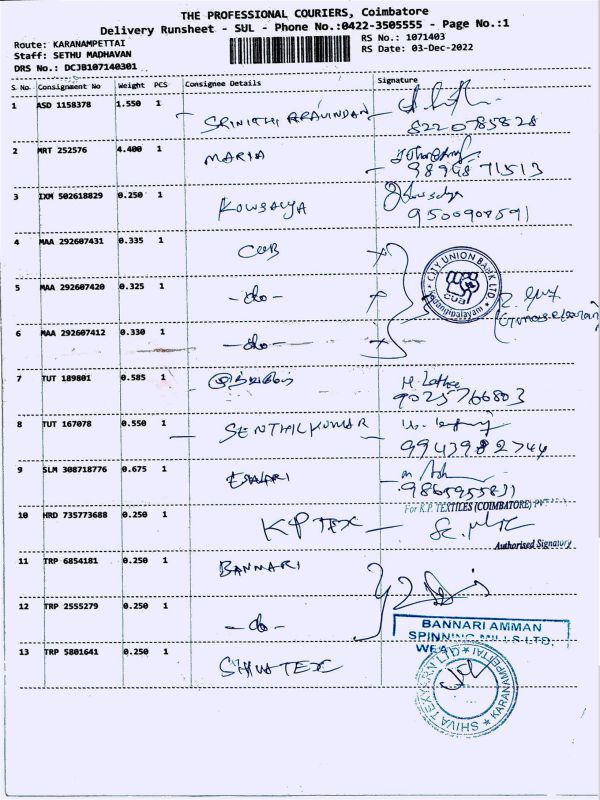 THE PROFESSIONAL COURIERS, Coimbatore
Delivery Runsheet - SUL - Phone No.:0422-3505555 - Page No.:1
Route: KARANAMPETTAI
Staff: SETHU MADHAVAN
DRS No.: DCJB107140301
RS No.: 1071403
RS Date: 03-Dec-2022
S. No. Consignment No Weight PCS Consignee Details Signature
1 ASD 1158378 1.550 1 SRINITHI ARAVINDAN
8220785828
2 MRT 252576 4.400 1 MARIA
9894871513
3 IXM 502618829 0.250 1 KOWSALYA Kowsalya
9500908591
4 MAA 292607431 0.335 1 CUB
CITY UNION BANK LTD
CUB
5 MAA 292607420 0.325 1 -do-
6 MAA 292607412 0.330 1 -do-
7 TUT 189801 0.585 1 M. Lathee
9025766803
8 TUT 167078 0.550 1 SENTHILKUMAR
9943982744
9 SLM 308718776 0.675 1
For K.P. TEXTILES (COIMBATORE)
10 HRD 735773688 0.250 1 KP TEX
Authorised Signatory
11 TRP 6854181 0.250 1 BANNARI
12 TRP 2555279 0.250 1 -do-
BANNARI AMMAN
SPINNING MILLS LTD.
13 TRP 5801641 0.250 1 SHIVA TEX
SHIVA TEXYARN LTD ★ KARANAMPETTAI ★